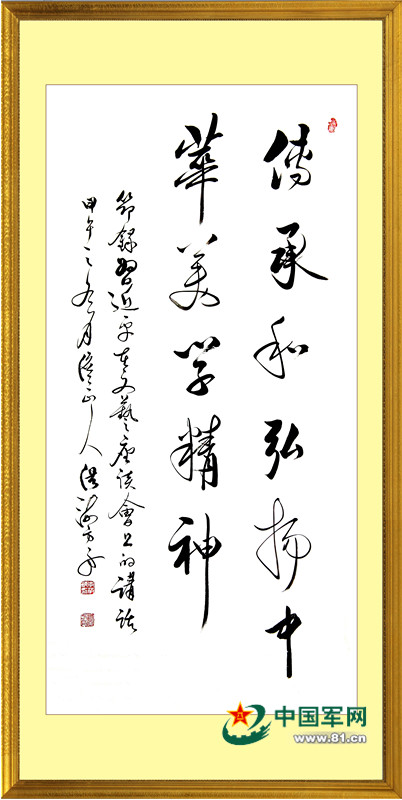 傳承和弘揚中
華美學精神
節錄習近平在文藝座談會上的講話
甲午之冬月山人
中国军网
www.81.cn